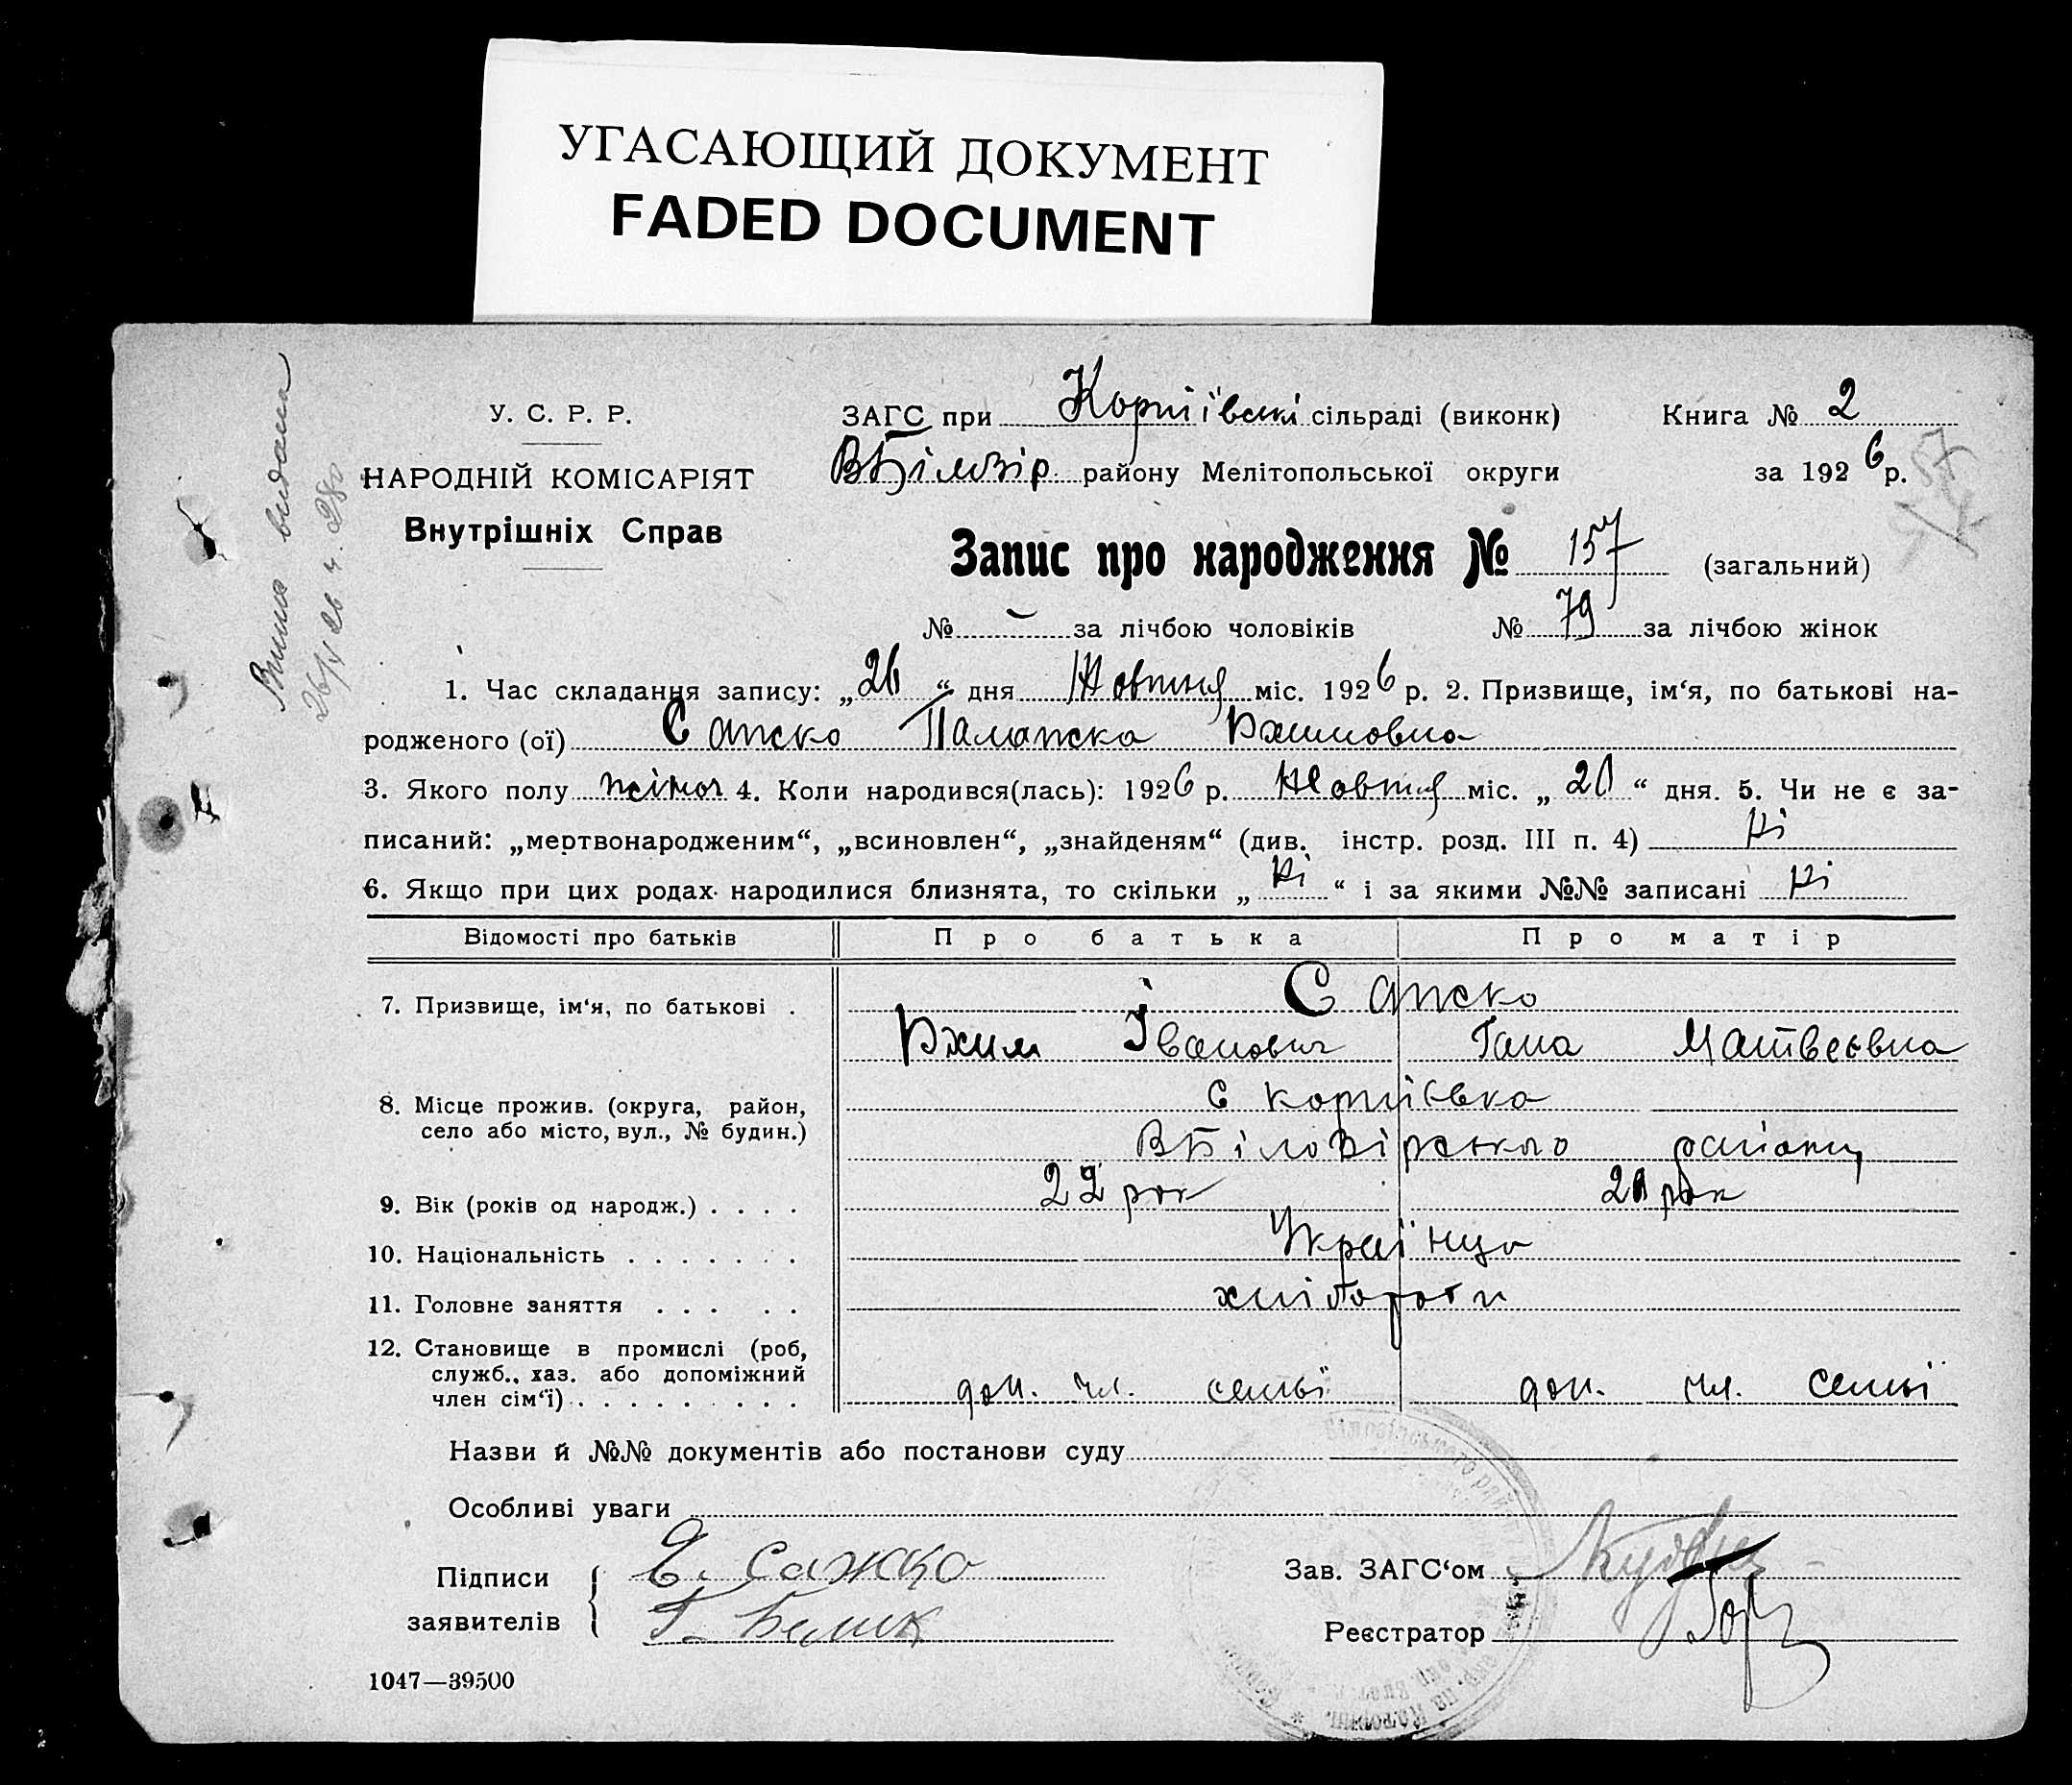 УГАСАЮЩИЙ ДОКУМЕНТ
FADED DOCUMENT
У. С. Р. Р.
НАРОДНІЙ КОМІСАРІЯТ
Внутрішніх Справ
ЗАГС при сільраді (виконк) Книга № 2
району Мелітопольської округи за 1926 р.
Запис про народження № 157 (загальний)
№ - за лічбою чоловіків № 79 за лічбою жінок
1. Час складання запису: „26“ дня Жовтня міс. 1926 р. 2. Призвище, ім‘я, по батькові на-
родженого (ої) Сапско
3. Якого полу жіноч 4. Коли народився(лась): 1926 р. Жовтня міс. „20“ дня. 5. Чи не є за-
писаний: „мертвонародженим“, „всиновлен“, „знайденям“ (див. інстр. розд. III п. 4) Ні
6. Якщо при цих родах народилися близнята, то скільки „Ні“ і за якими №№ записані Ні
Відомості про батьків Про батька Про матір
7. Призвище, ім‘я, по батькові .
Юхим Іванович Гана Матвеєвна
8. Місце прожив. (округа, район,
село або місто, вул., № будин.)
с
району
9. Вік (років од народж.) . . . . 22 рок 21 рок
10. Національність . . . . . . . Українці
11. Головне заняття . . . . . хлібороби
12. Становище в промислі (роб,
служб., хаз. або допоміжний
член сім‘ї) . . . . . . . . . доп. чл. семьї доп. чл. семьї
Назви й №№ документів або постанови суду
Особливі уваги
Підписи Е. Сажко
заявителів Г. Белик
Зав. ЗАГС‘ом
Реєстратор
1047—39500